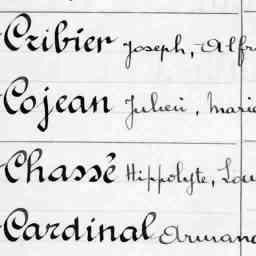 Cribier Joseph, Alfr
Cojean Julien, Marie
Chassé Hippolyte, Lou
Cardinal Armand